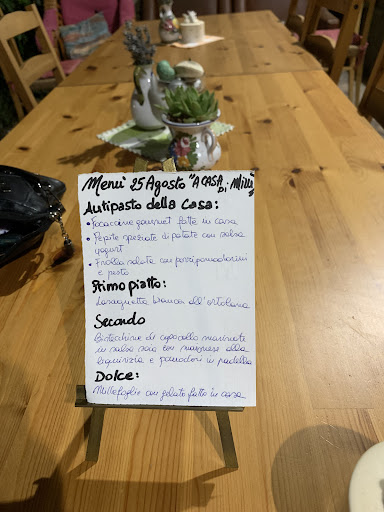 Menu' 25 Agosto "A CASA Di Milly
Antipasto della Casa:
• Focaccine gourmet fatte in casa
• Pepite speziate di patate con salsa
yogurt
• Frolla salata con porri pomodorini
e pesto
Primo piatto:
Lasagnetta bianca all'ortolana
Secondo
Bistecchine di capocollo marinate
in salsa soia con maionese alla
liquirizia e pomodori in padella
Dolce:
Millefoglie con gelato fatto in casa